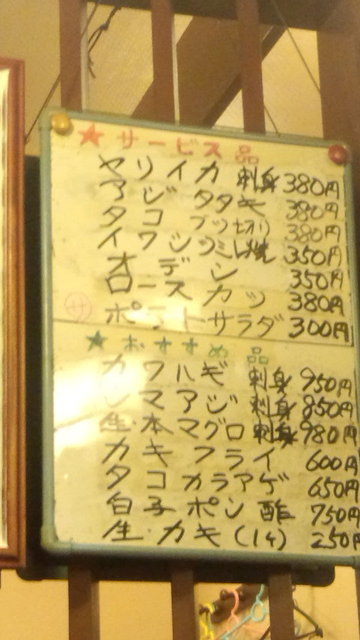 ★サービス品
ヤリイカ 刺身 380円
アジ タタキ 380円
タコ ブツ切リ 380円
イワシツミレ焼 350円
オデン 350円
ロースカツ 380円
サ ポテトサラダ 300円
★おすすめ品
カワハギ 刺身 950円
シマアジ 刺身 850円
生本マグロ 刺身 980円
カキフライ 600円
タコカラアゲ 650円
白子ポン酢 750円
生カキ(1ケ) 250円